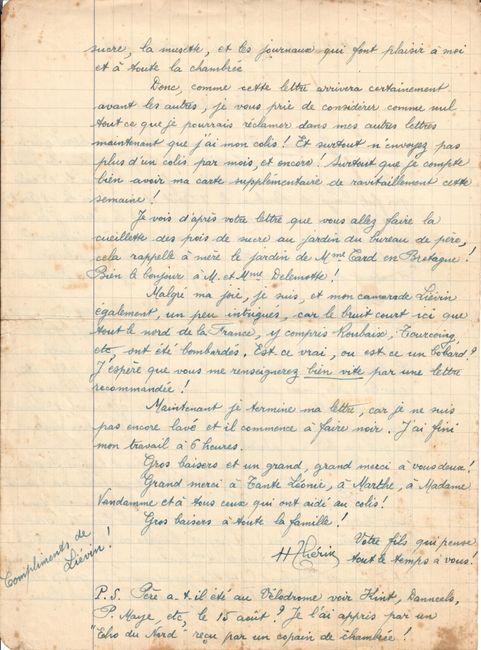 sucre, la musette, et les journaux qui font plaisir à moi
et à toute la chambrée
Donc, comme cette lettre arrivera certainement
avant les autres, je vous prie de considérer comme nul
tout ce que je pourrais réclamer dans mes autres lettres
maintenant que j'ai mon colis! Et surtout n'envoyez pas
plus d'un colis par mois, et encore! Surtout que je compte
bien avoir ma carte supplémentaire de ravitaillement cette
semaine!
Je vois d'après votre lettre que vous allez faire la
cueillette des pois de sucre au jardin du bureau de père,
cela rappelle à mère le jardin de Mme Tard en Bretagne!
Bien le bonjour à M. et Mme Delemotte!
Malgré ma joie, je suis, et mon camarade Liévin
également, un peu intrigués, car le bruit court ici que
tout le nord de la France, y compris Roubaix, Tourcoing,
etc, ont été bombardés. Est ce vrai, ou est ce un bobard?
J'espère que vous me renseignerez bien vite par une lettre
recommandée!
Maintenant je termine ma lettre, car je ne suis
pas encore lavé et il commence à faire noir. J'ai fini
mon travail à 6 heures.
Gros baisers et un grand, grand merci à vous deux!
Grand merci à Tante Léonie, à Marthe, à Madame
Vandamme et à tous ceux qui ont aidé au colis!
Gros baisers à toute la famille!
Votre fils qui pense
tout le temps à vous!
Compliments de
Liévin!
P.S. Père a-t-il été au Vélodrome voir Kint, Danneels,
P. Maye, etc, le 15 août? Je l'ai appris par un
"Echo du Nord" reçu par un copain de chambrée!